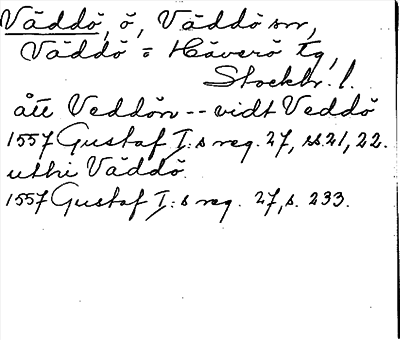 Väddö, ö, Väddö sn,
Väddö = Häverö tg,
Stockh. l.
ått Veddön -- vidt Veddö
1557 Gustaf I:s reg. 27, ss. 21, 22.
uthi Väddö
1557 Gustaf I:s reg. 27, s. 233.